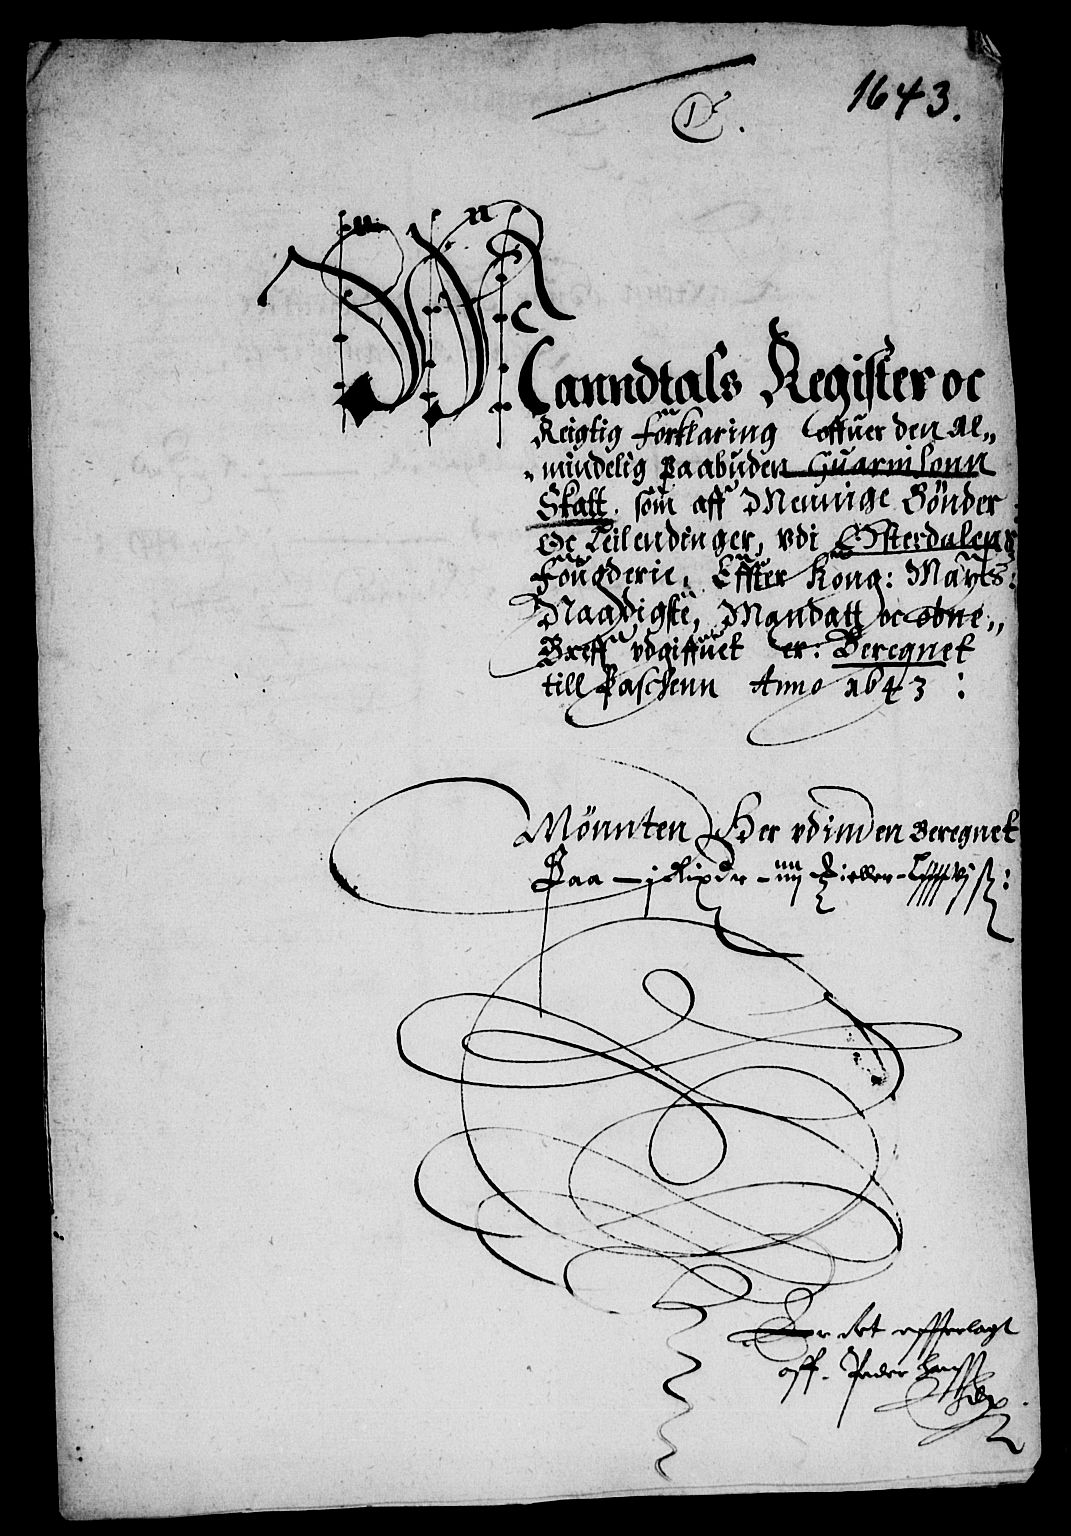 1643.
Manndtals Register oc
Reigtig förklaring offuer den Al„
„mindelig paabuden Guarnisonn
Skatt, som aff Mennige Bönder
Oc Leilendinger, vdi Østerdalens
Fougderie, Effter Kong: Maÿts:
Naadigste, Mandatt oc obne„
Breff vdgiffuet er: Beregnet
till Paaschenn Anno 1643:
Mönnten Her vdinden Beregnet
Paa – j Rixdr – iiij
Er det offverlagt
aff Peder